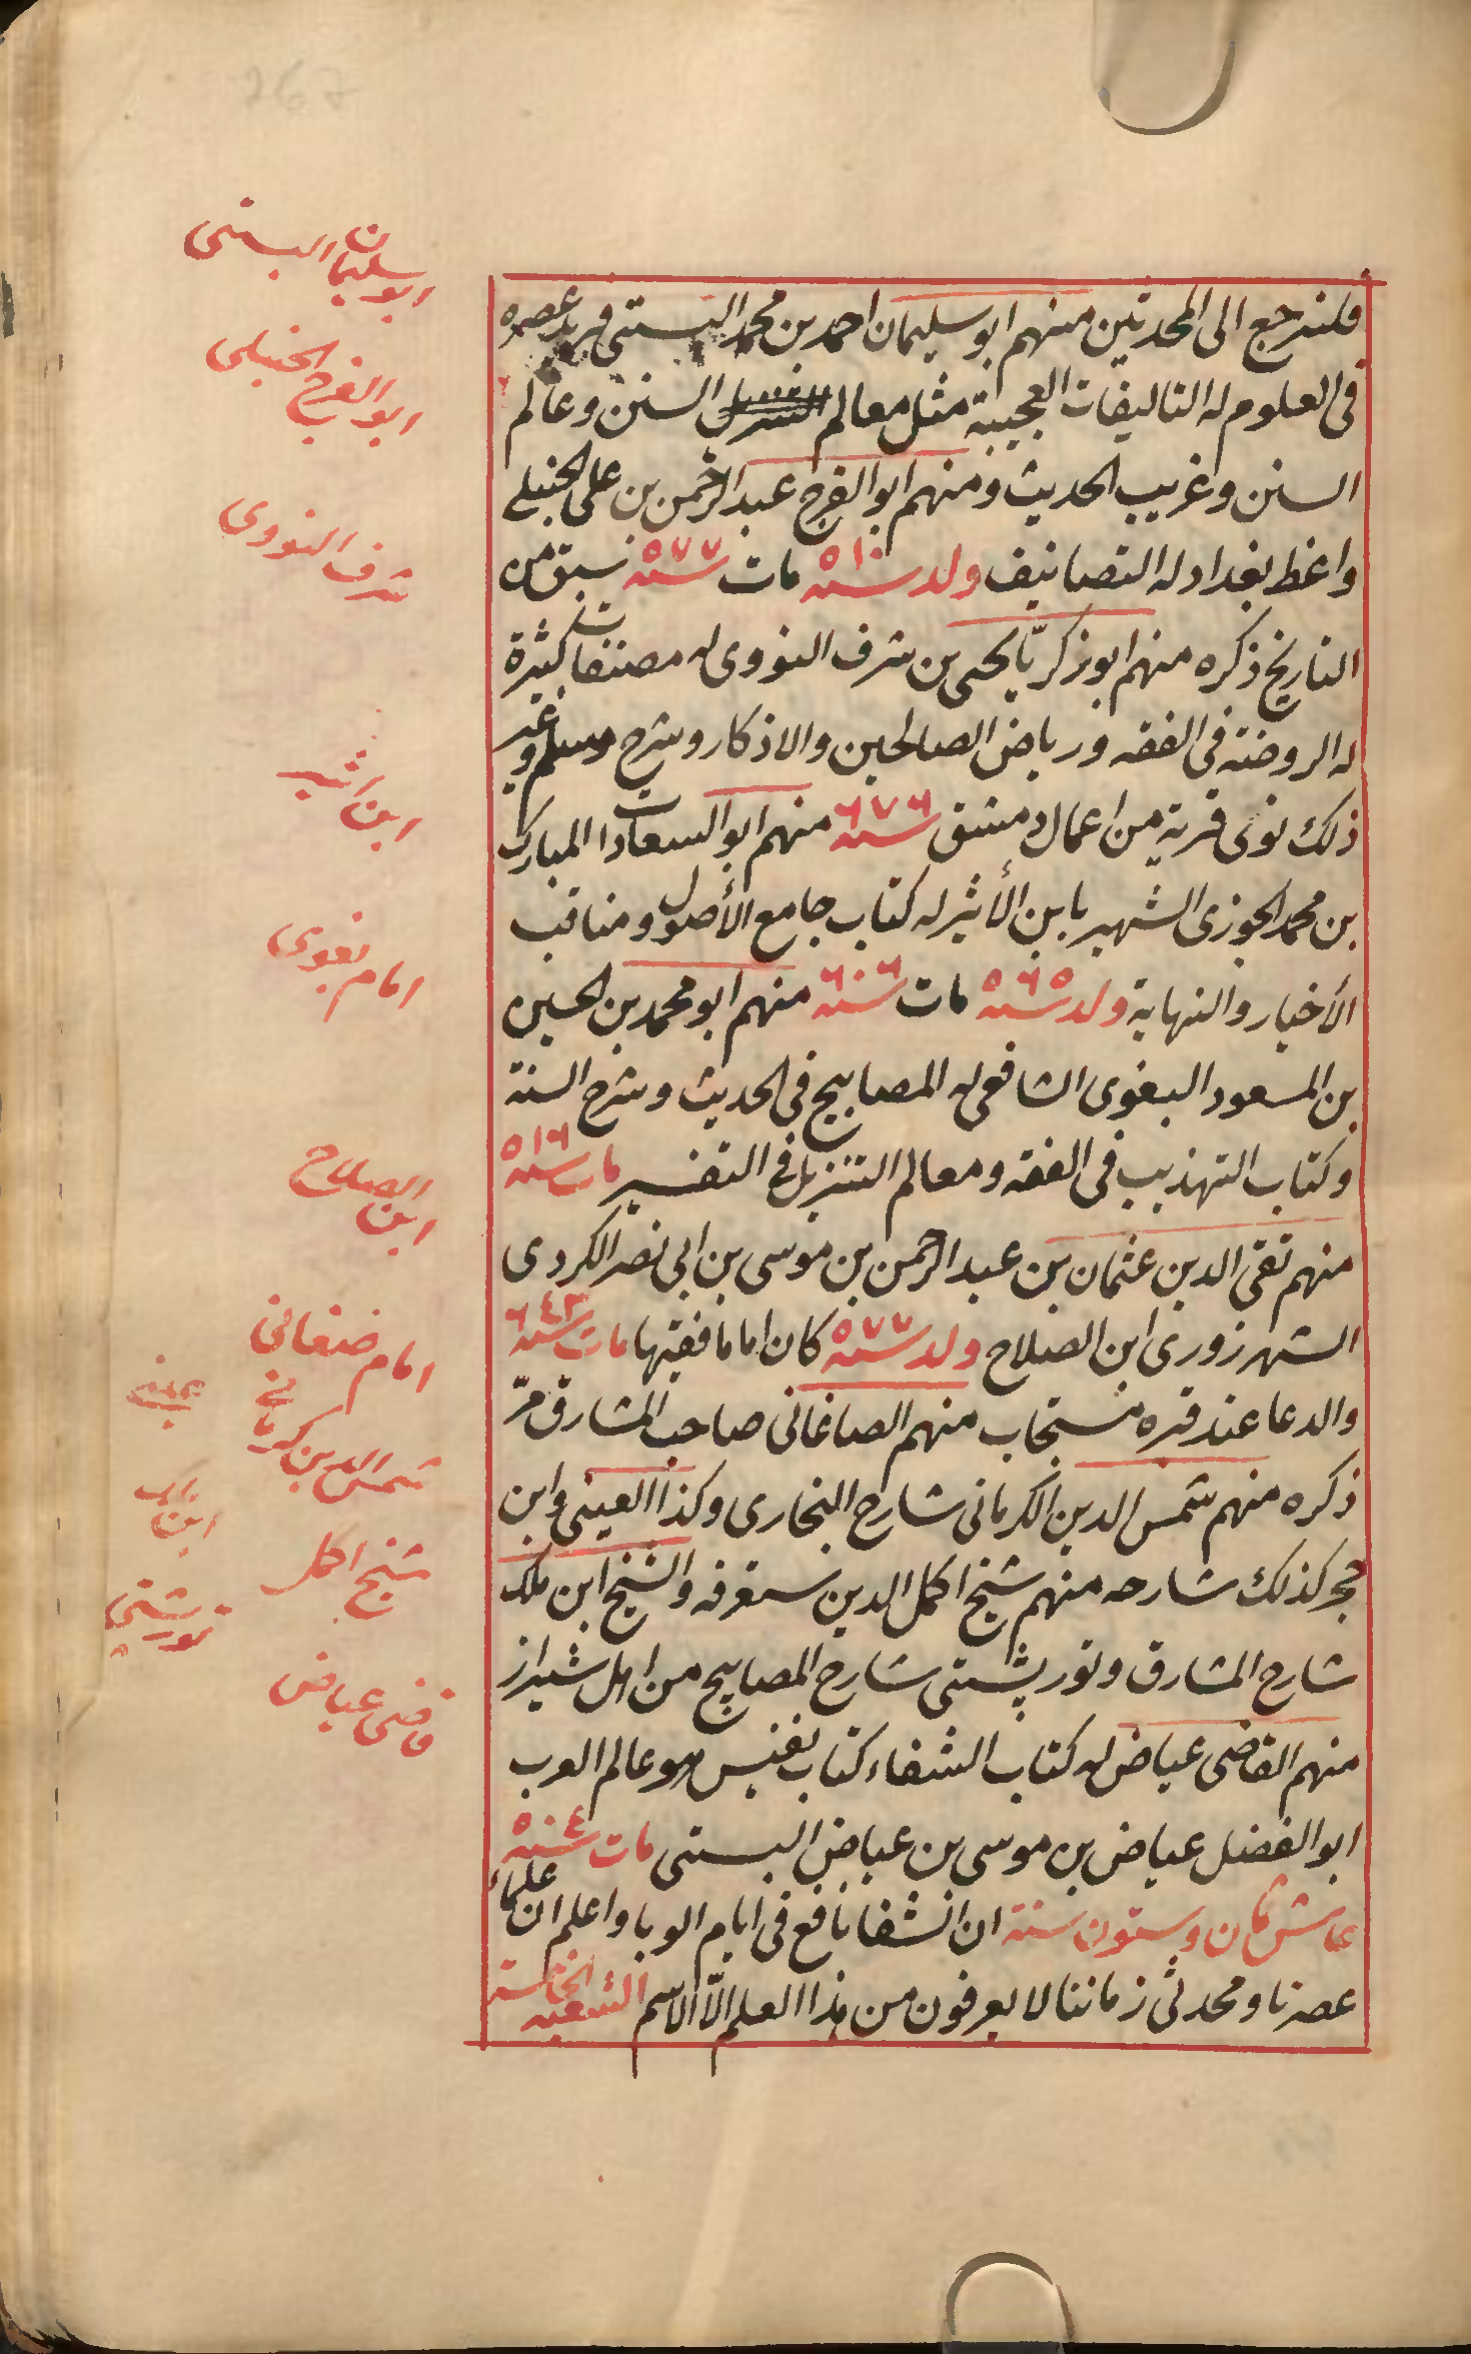 فلنرجع الى المحدثين منهم ابو سليمان احمد بن محمد البستى فريد عصره
فى العلوم له التاليفات العجيبة مثل معالم السنن وعالم
السنن وغريب الحديث ومنهم ابو الفرج عبد الرحمن بن على الحنبلى
واعظ بغداد له التصانيف ولد سنه ٥١٠ مات سنه ٥٧٧ سبق من
التاريخ ذكره منهم ابو زكريّا يحيى بن شرف النووى له مصنفات كثيرة
له الروضة فى الفقه ورياض الصالحين والاذكار وشرح مسلم وغير
ذلك نوى قرية من اعمال دمشق سنه ٦٧٦ منهم ابو السعادات المبارك
بن محمد الجوزى الشهير بابن الأثير له كتاب جامع الأصول ومناقب
الأخيار والنهاية ولد سنه ٥٦٥ مات سنه ٦٠٦ منهم ابو محمد بن الحسين
بن المسعود البغوى الشافعى له المصابيح فى الحديث وشرح السنة
وكتاب التهذيب فى الفقه ومعالم التنزيل فى التفسير مات سنه ٥١٦
منهم تقى الدين عثمان بن عبد الرحمن بن موسى بن ابى نصر الكردى
الشهرزورى ابن الصلاح ولد سنه ٥٧٧ كان اماما فقيها مات سنه ٦٤٣
والدعا عند قبره مستجاب منهم الصاغانى صاحب المشارق مرّ
ذكره منهم شمس الدين الكرمانى شارح البخارى وكذا العينى وابن
حجر كذلك شارحه منهم شيخ اكمل الدين ستعرفه والشيخ ابن ملك
شارح المشارق وتورپشتى شارح المصابيح من اهل شيراز
منهم القاضى عياض له كتاب الشفاء كتاب نفيس هو عالم العرب
ابو الفضل عياض بن موسى بن عياض البستى مات سنه ٥٠٤
عاش ثمان وستون سنة ان الشفا نافع فى ايام الوبا واعلم ان علماء
عصرنا ومحدثى زماننا لا يعرفون من هذا العلم الّا الاسم الشعبه الخامسة
ابو سليمان البستى
ابو الفرج الحنبلى
شرف النووى
ابن اثير
امام بغوى
ابن الصلاح
امام صغانى
شمس الدين كرمانى
عينى
ابن ملك
شيخ اكمل
تورپشتى
قاضى عياض